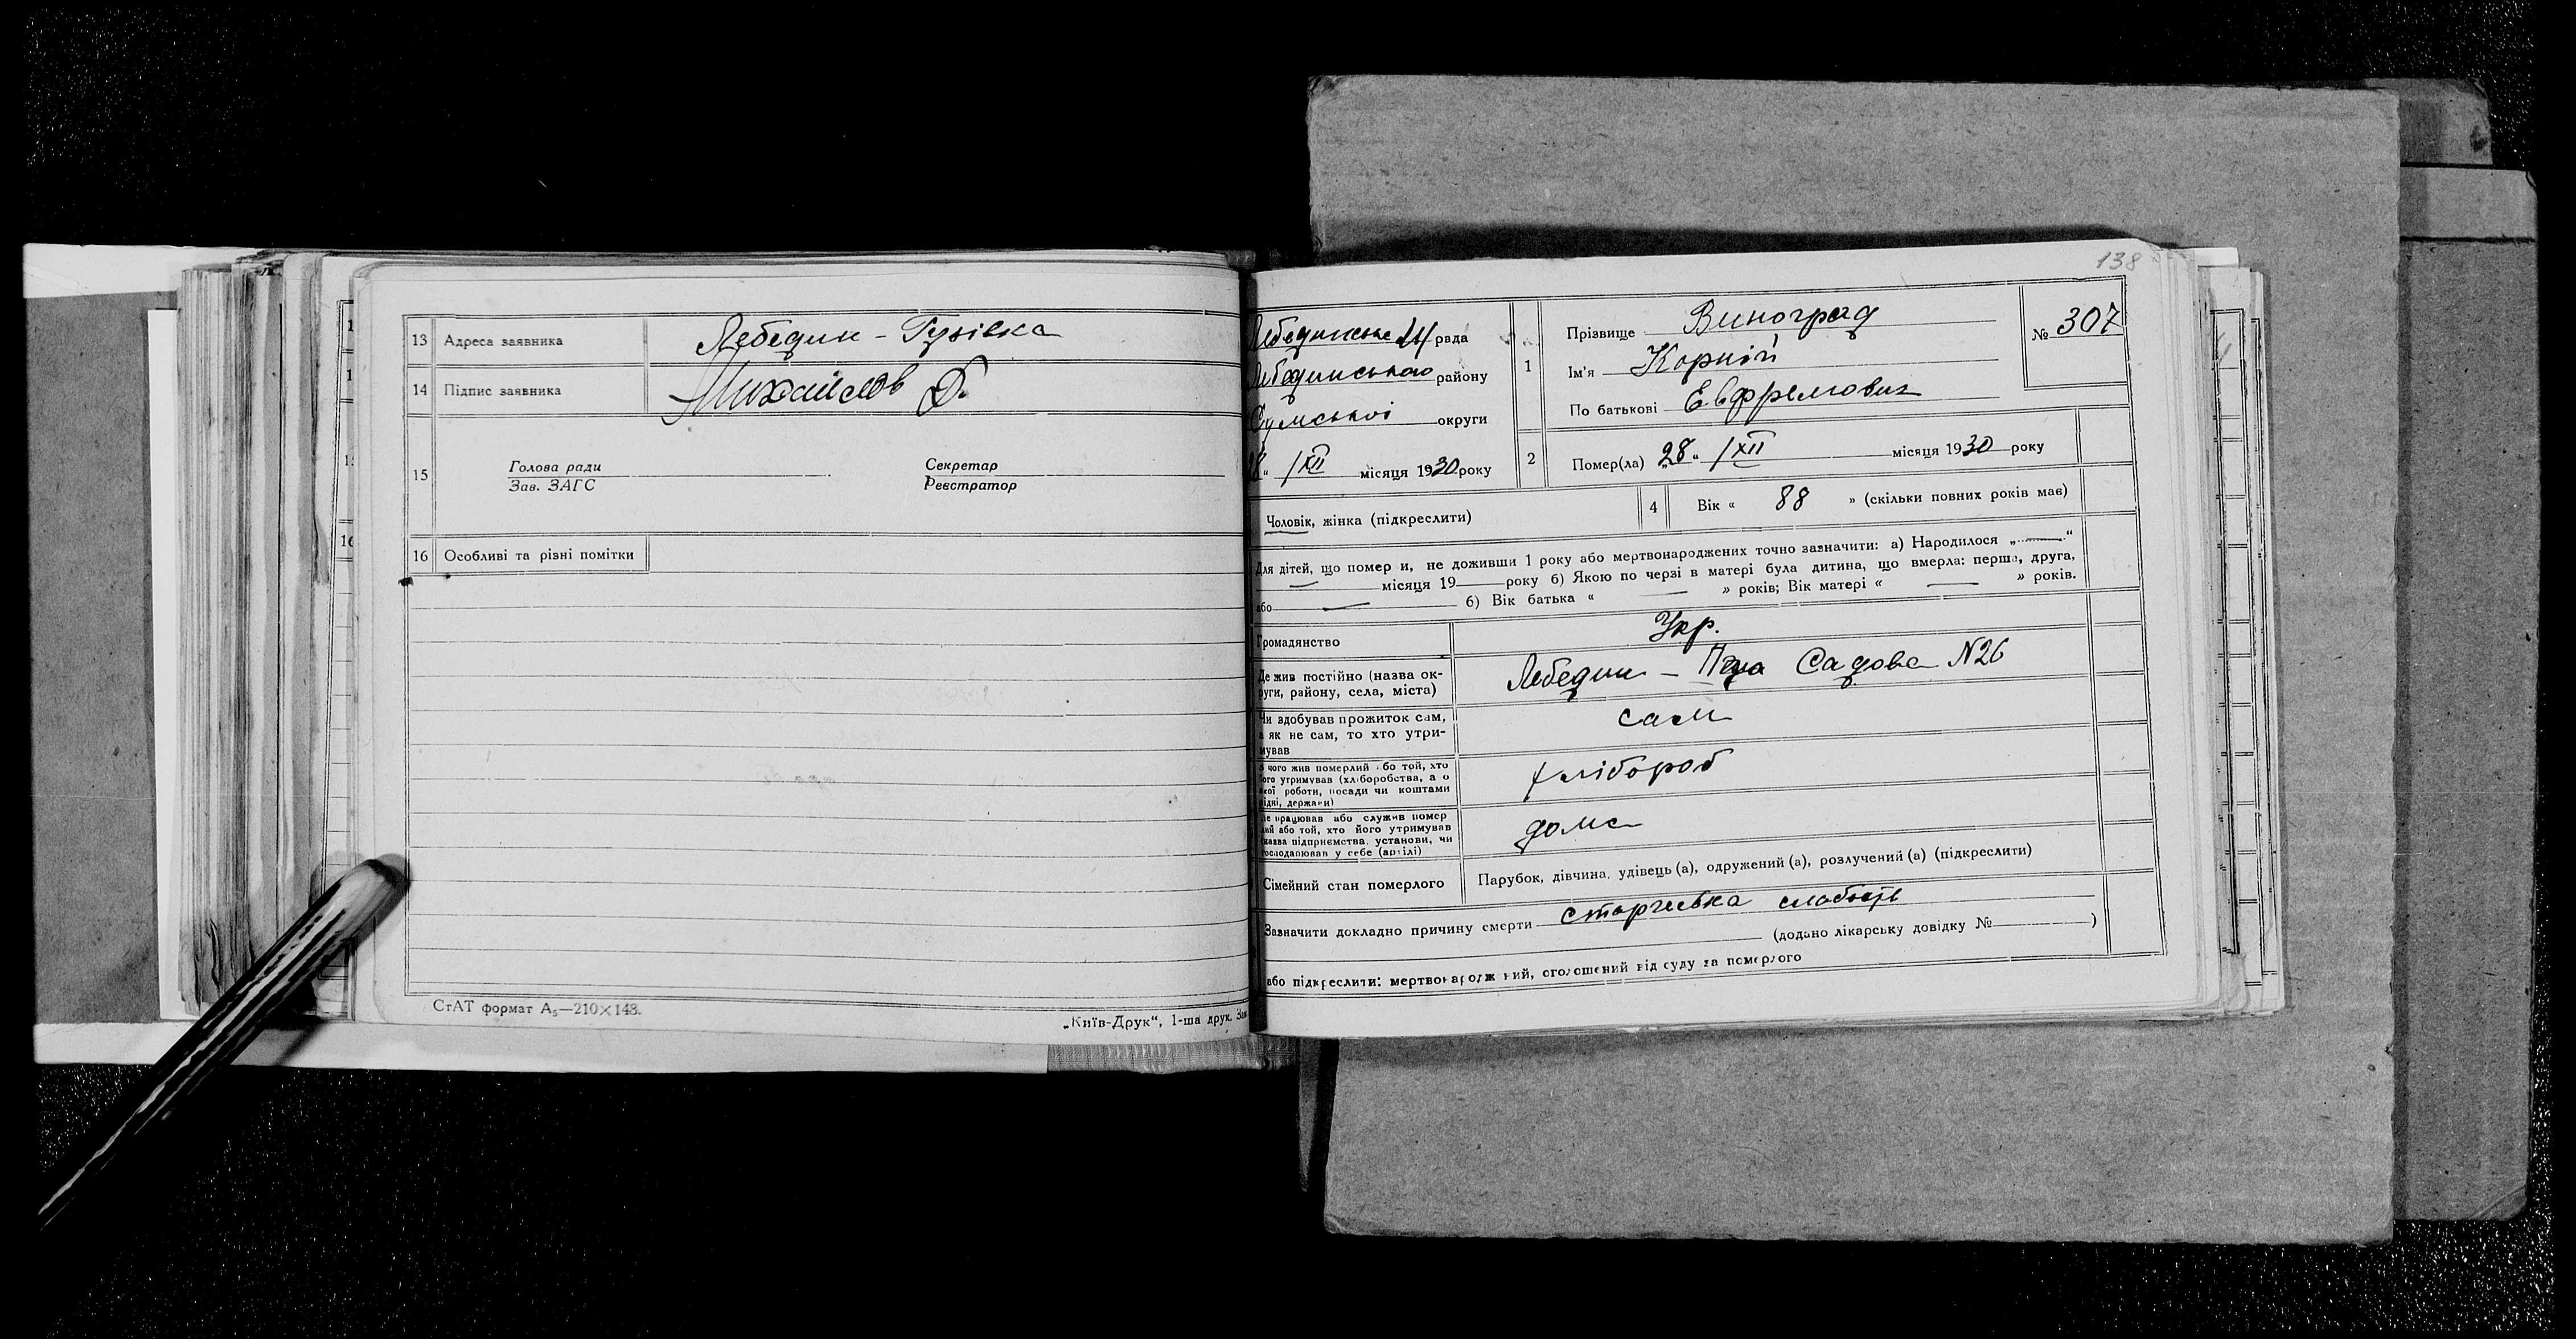 13 Адреса заявника Лебедин - Гузівка
14 Підпис заявника Михайлов
15 Голова ради
Зав. ЗАГС
Секретар
Реєстратор
16 Особливі та різні помітки
СтАТ формат А₅—210×143.
„Київ-Друк“, 1-ша друк. Зам.
138
рада
району
Сумської округи
/XII місяця 1930 року
1 Прізвище Виноград
Ім'я Корній
По батькові Евфремович
№ 307
2 Помер(ла) „28“ /XII місяця 1930 року
Чоловік, жінка (підкреслити)
4 Вік « 88 » (скільки повних років має)
Для дітей, що помер и, не доживши 1 року або мертвонароджених точно зазначити: а) Народилося „ “
місяця 19 року б) Якою по черзі в матері була дитина, що вмерла: перша, друга,
або б) Вік батька « » років; Вік матері « » років.
Громадянство Укр.
Де жив постійно (назва ок-
руги, району, села, міста) Лебедин - Садова N 26
Чи здобував прожиток сам,
а як не сам, то хто утри-
мував сам
З чого жив померлий або той, хто
його утримував (хліборобства, а о
якої роботи, посади чи коштами
рідні, держави) хлібороб
Де працював або служив помер
лий або той, хто його утримував
(назва підприємства, установи, чи
господарював у себе (артілі) дома
Сімейний стан померлого Парубок, дівчина, удівець (а), одружений (а), розлучений (а) (підкреслити)
Зазначити докладно причину смерти старчевка слабость
(додано лікарську довідку № )
або підкреслити: мертвонароджений, оголошений від суду за померлого